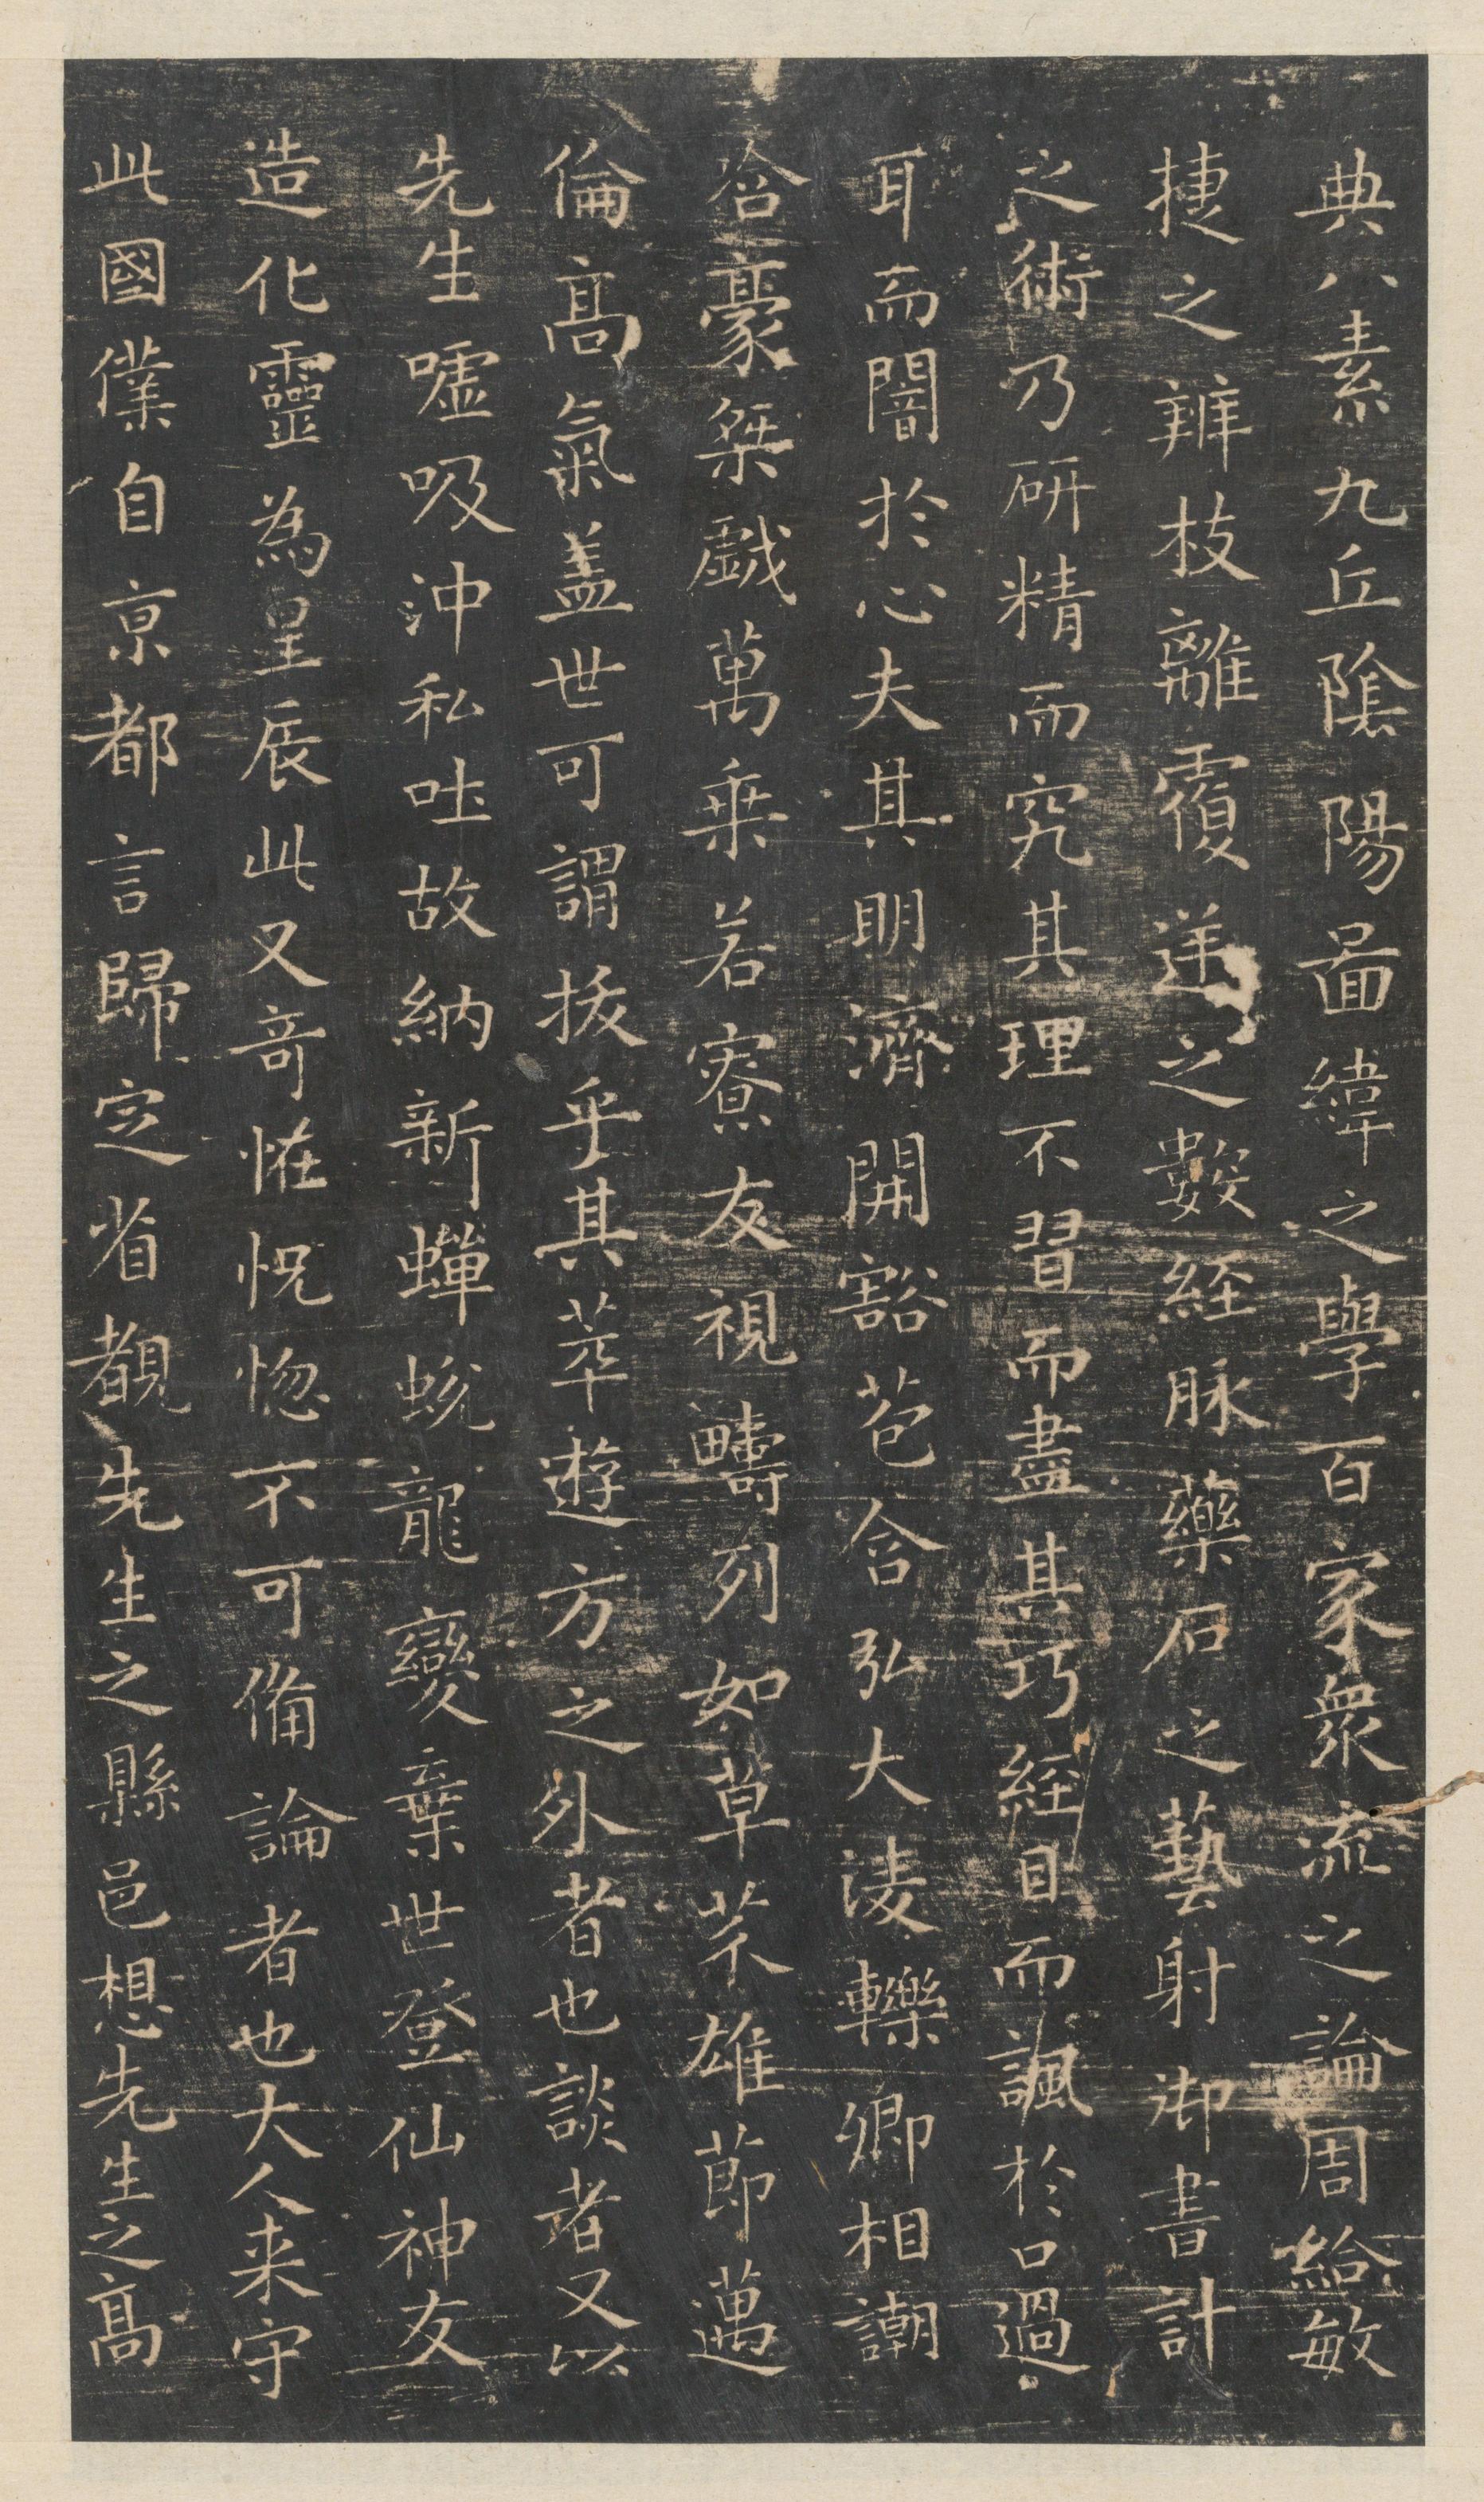 典八素九丘陰陽圖緯之學百家眾流之論周給敏
捷之辨枝離覆逆之數經脉藥石之藝射御書計
之術乃研精而究其理不習而盡其巧經目而諷於口過
耳而闇於心夫其明濟開豁苞含弘大淩轢卿相謿
哈豪桀戲萬乗若寮友視疇列如草芥雄節邁
倫髙氣盖世可謂拔乎其萃遊方之外者也談者又以
先生噓吸沖和吐故納新蟬蛻龍變棄世登仙神友
造化靈為星辰此又奇恠怳惚不可備論者也大人来守
此國僕自京都言歸定省覩先生之縣邑想先生之髙